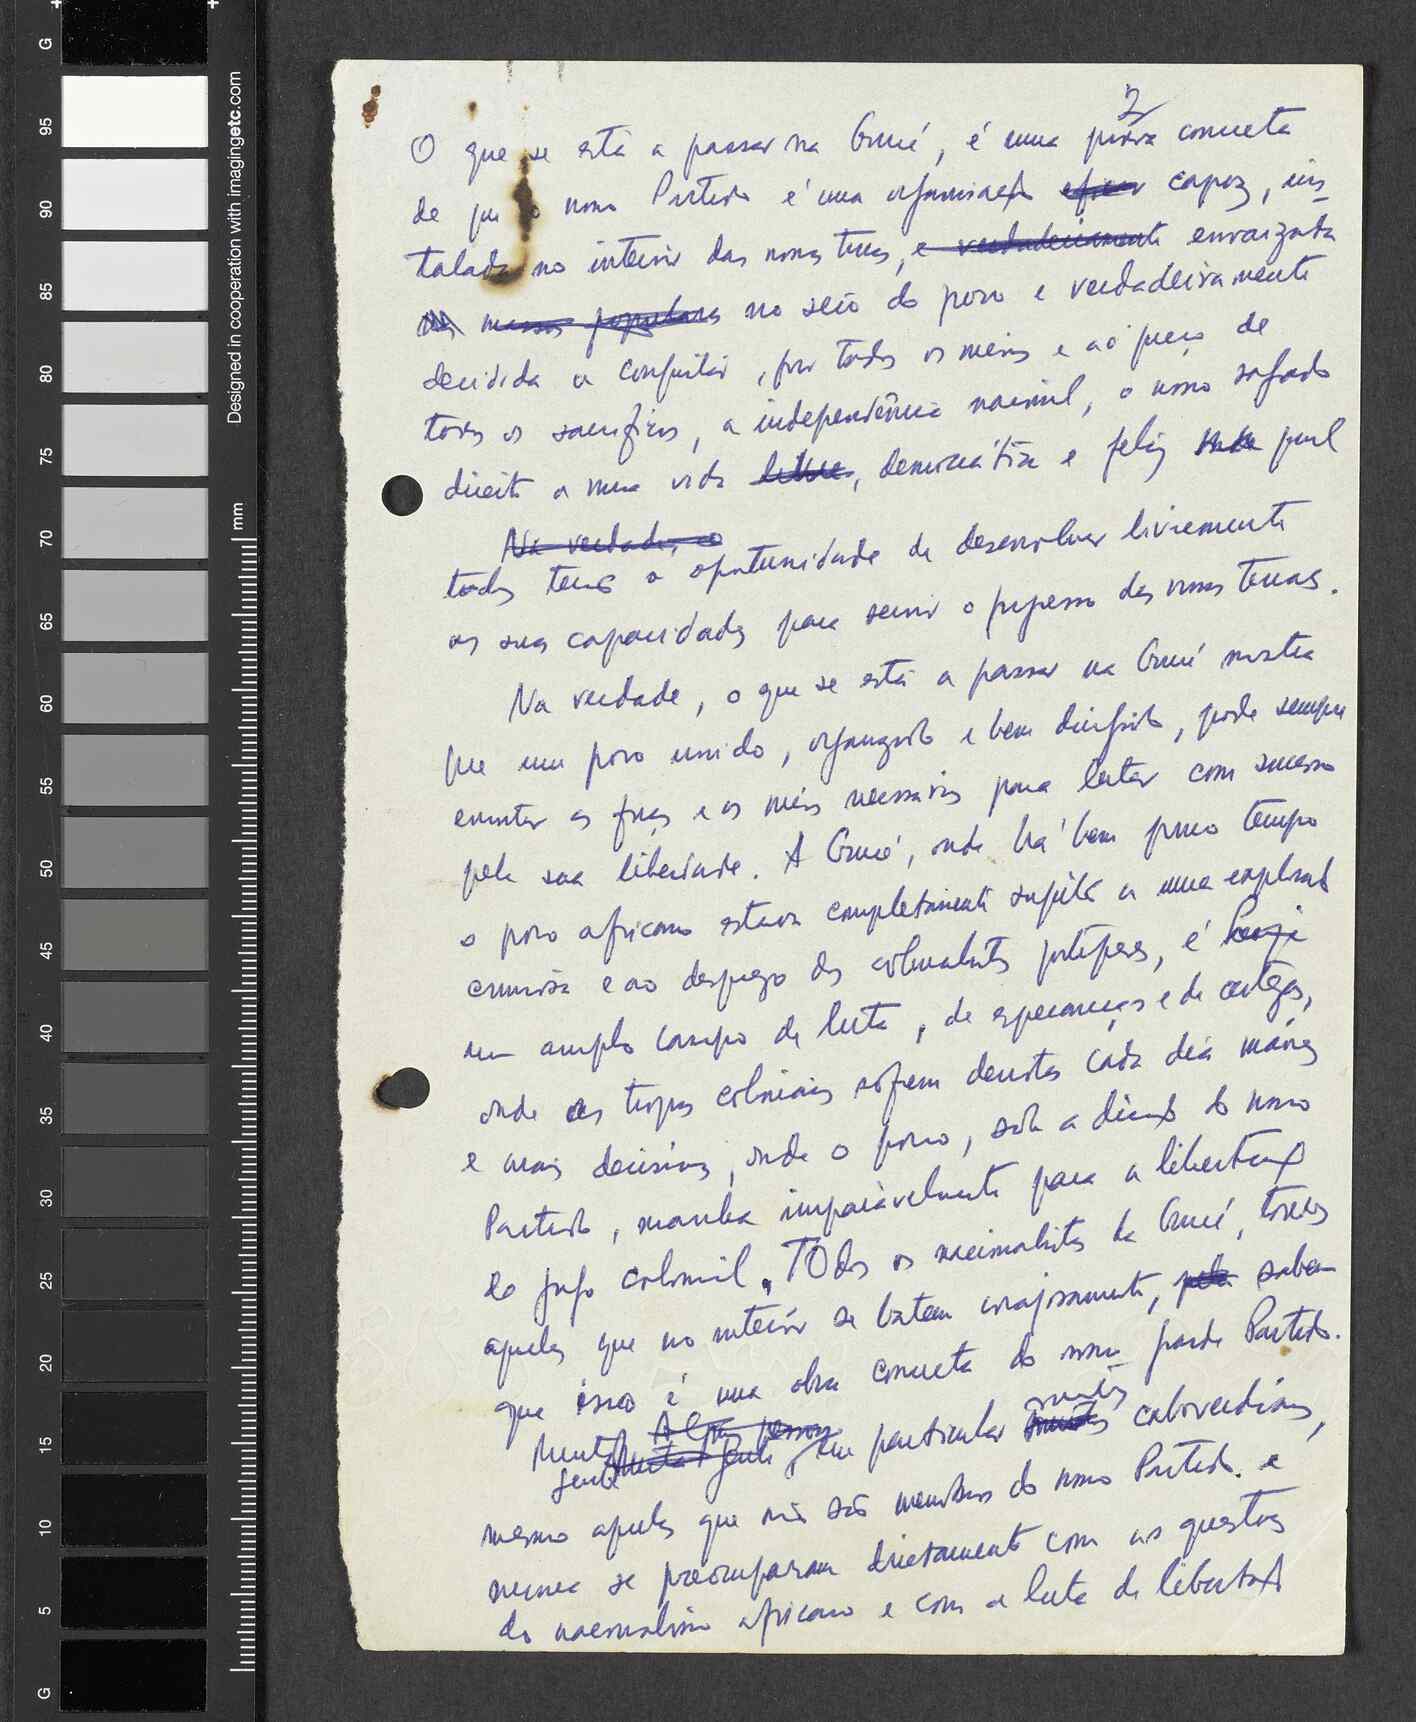 2
O que se está a passar na Guiné, é uma prova concreta
de que o nosso Partido é uma organização eficaz capaz, ins_
talada no interior das nossas terras, e verdadeiramente enraizada
nas massas populares no seio do povo e verdadeiramente
decidida a conquistar, por todos os meios e ao preço de
todos os sacrifícios, a independência nacional, o nosso sagrado
direito a uma vida livre, democrática e feliz na qual
Na verdade, o
todos tenhamos a oportunidade de desenvolver livremente
as suas capacidades para servir o progresso das nossas terras.
Na verdade, o que se está a passar na Guiné mostra
que um povo unido, organizado e bem dirigido, pode sempre
encontrar as forças e os meios necessários para lutar com sucesso
pela sua liberdade. A Guiné, onde há bem pouco tempo
o povo africano estava completamente sujeito a uma exploração
criminosa e ao desprezo dos colonialistas portugueses, é hoje
um amplo campo de luta, de esperanças e de certezas,
onde as tropas coloniais sofrem derrotas cada dia maiores
e mais decisivas, onde o povo, sob a direcção do nosso
Partido, marcha imparavelmente para a libertação
do jugo colonial. TOdos os nacionalistas da Guiné, todos
aqueles que no interior se batem corajosamente, pela sabem
que isso é uma obra concreta do nosso grande Partido.
Muita Algumas pessoas muitos
gente Muita gente, em particular caboverdianos,
mesmo aqueles que não são membros do nosso Partido e
nunca se preocuparam directamente com as questões
do nacionalismo africano e com a luta de libertação